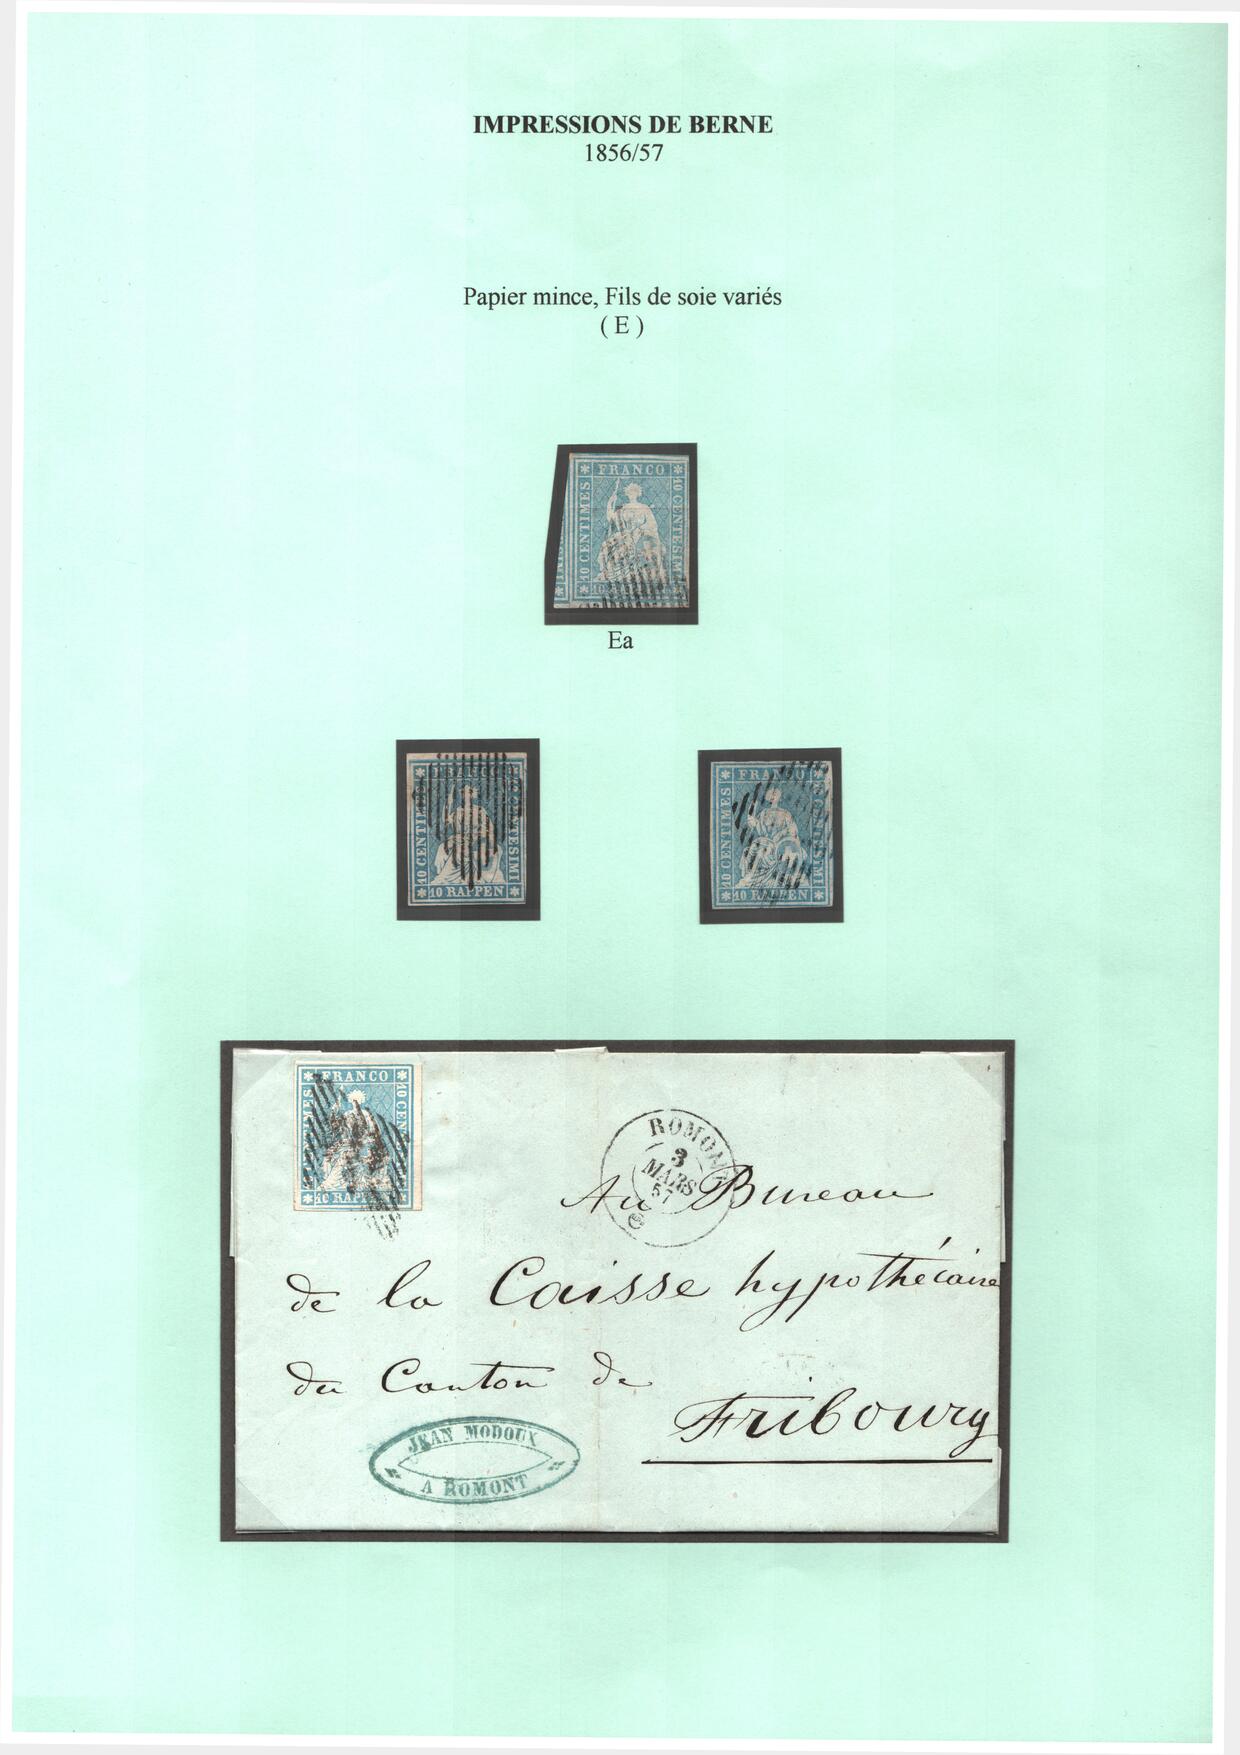 IMPRESSIONS DE BERNE
1856/57
Papier mince, Fils de soie variés
( E )
FRANCO
10 CENTIMES
10 CENTESIMI
10
Ea
FRANCO
10 CENTIMES
10 CENTESIMI
10 RAPPEN
FRANCO
10 CENTIMES
10 CENTESIMI
10 RAPPEN
FRANCO
10 CEN
10 RAPP
ROMONT
3
MARS
57
Au Bureau
de la Caisse hypothécaire
du Canton de
Fribourg
JEAN MODOUX
A ROMONT